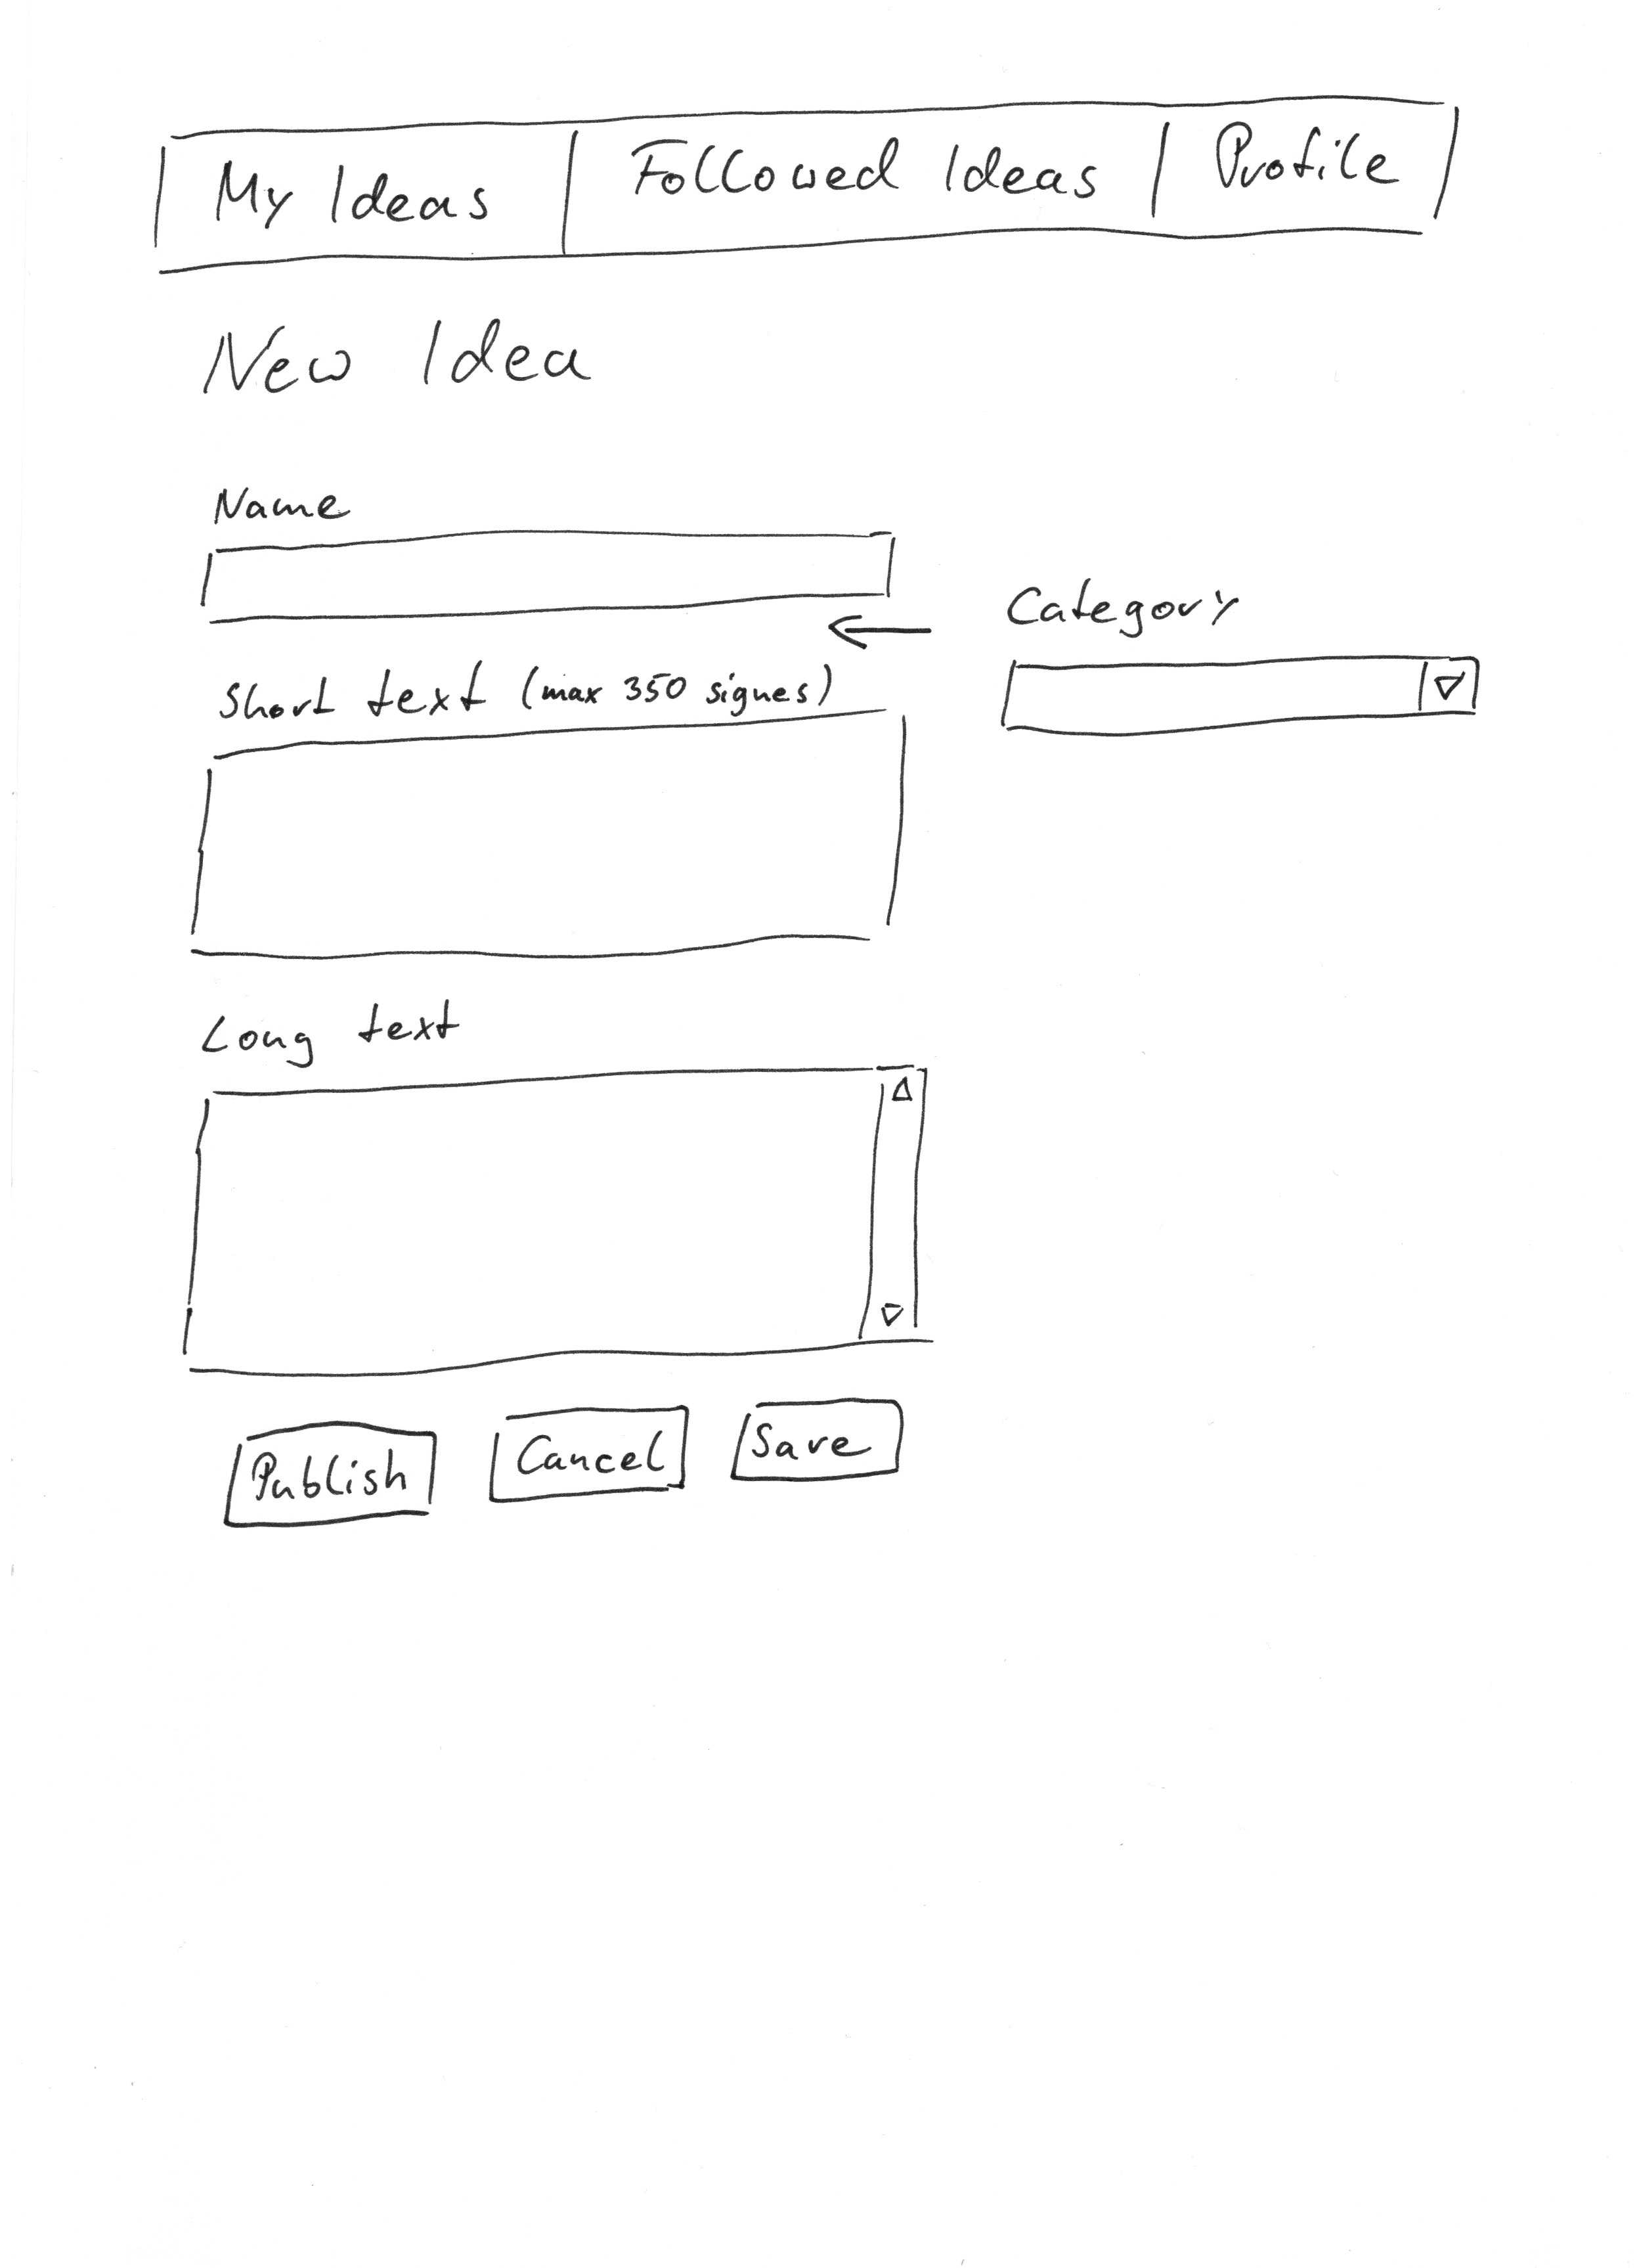 My Ideas Followed Ideas Profile
New Idea
Name
Category
Short text (max 350 signes)
Long text
Publish Cancel Save